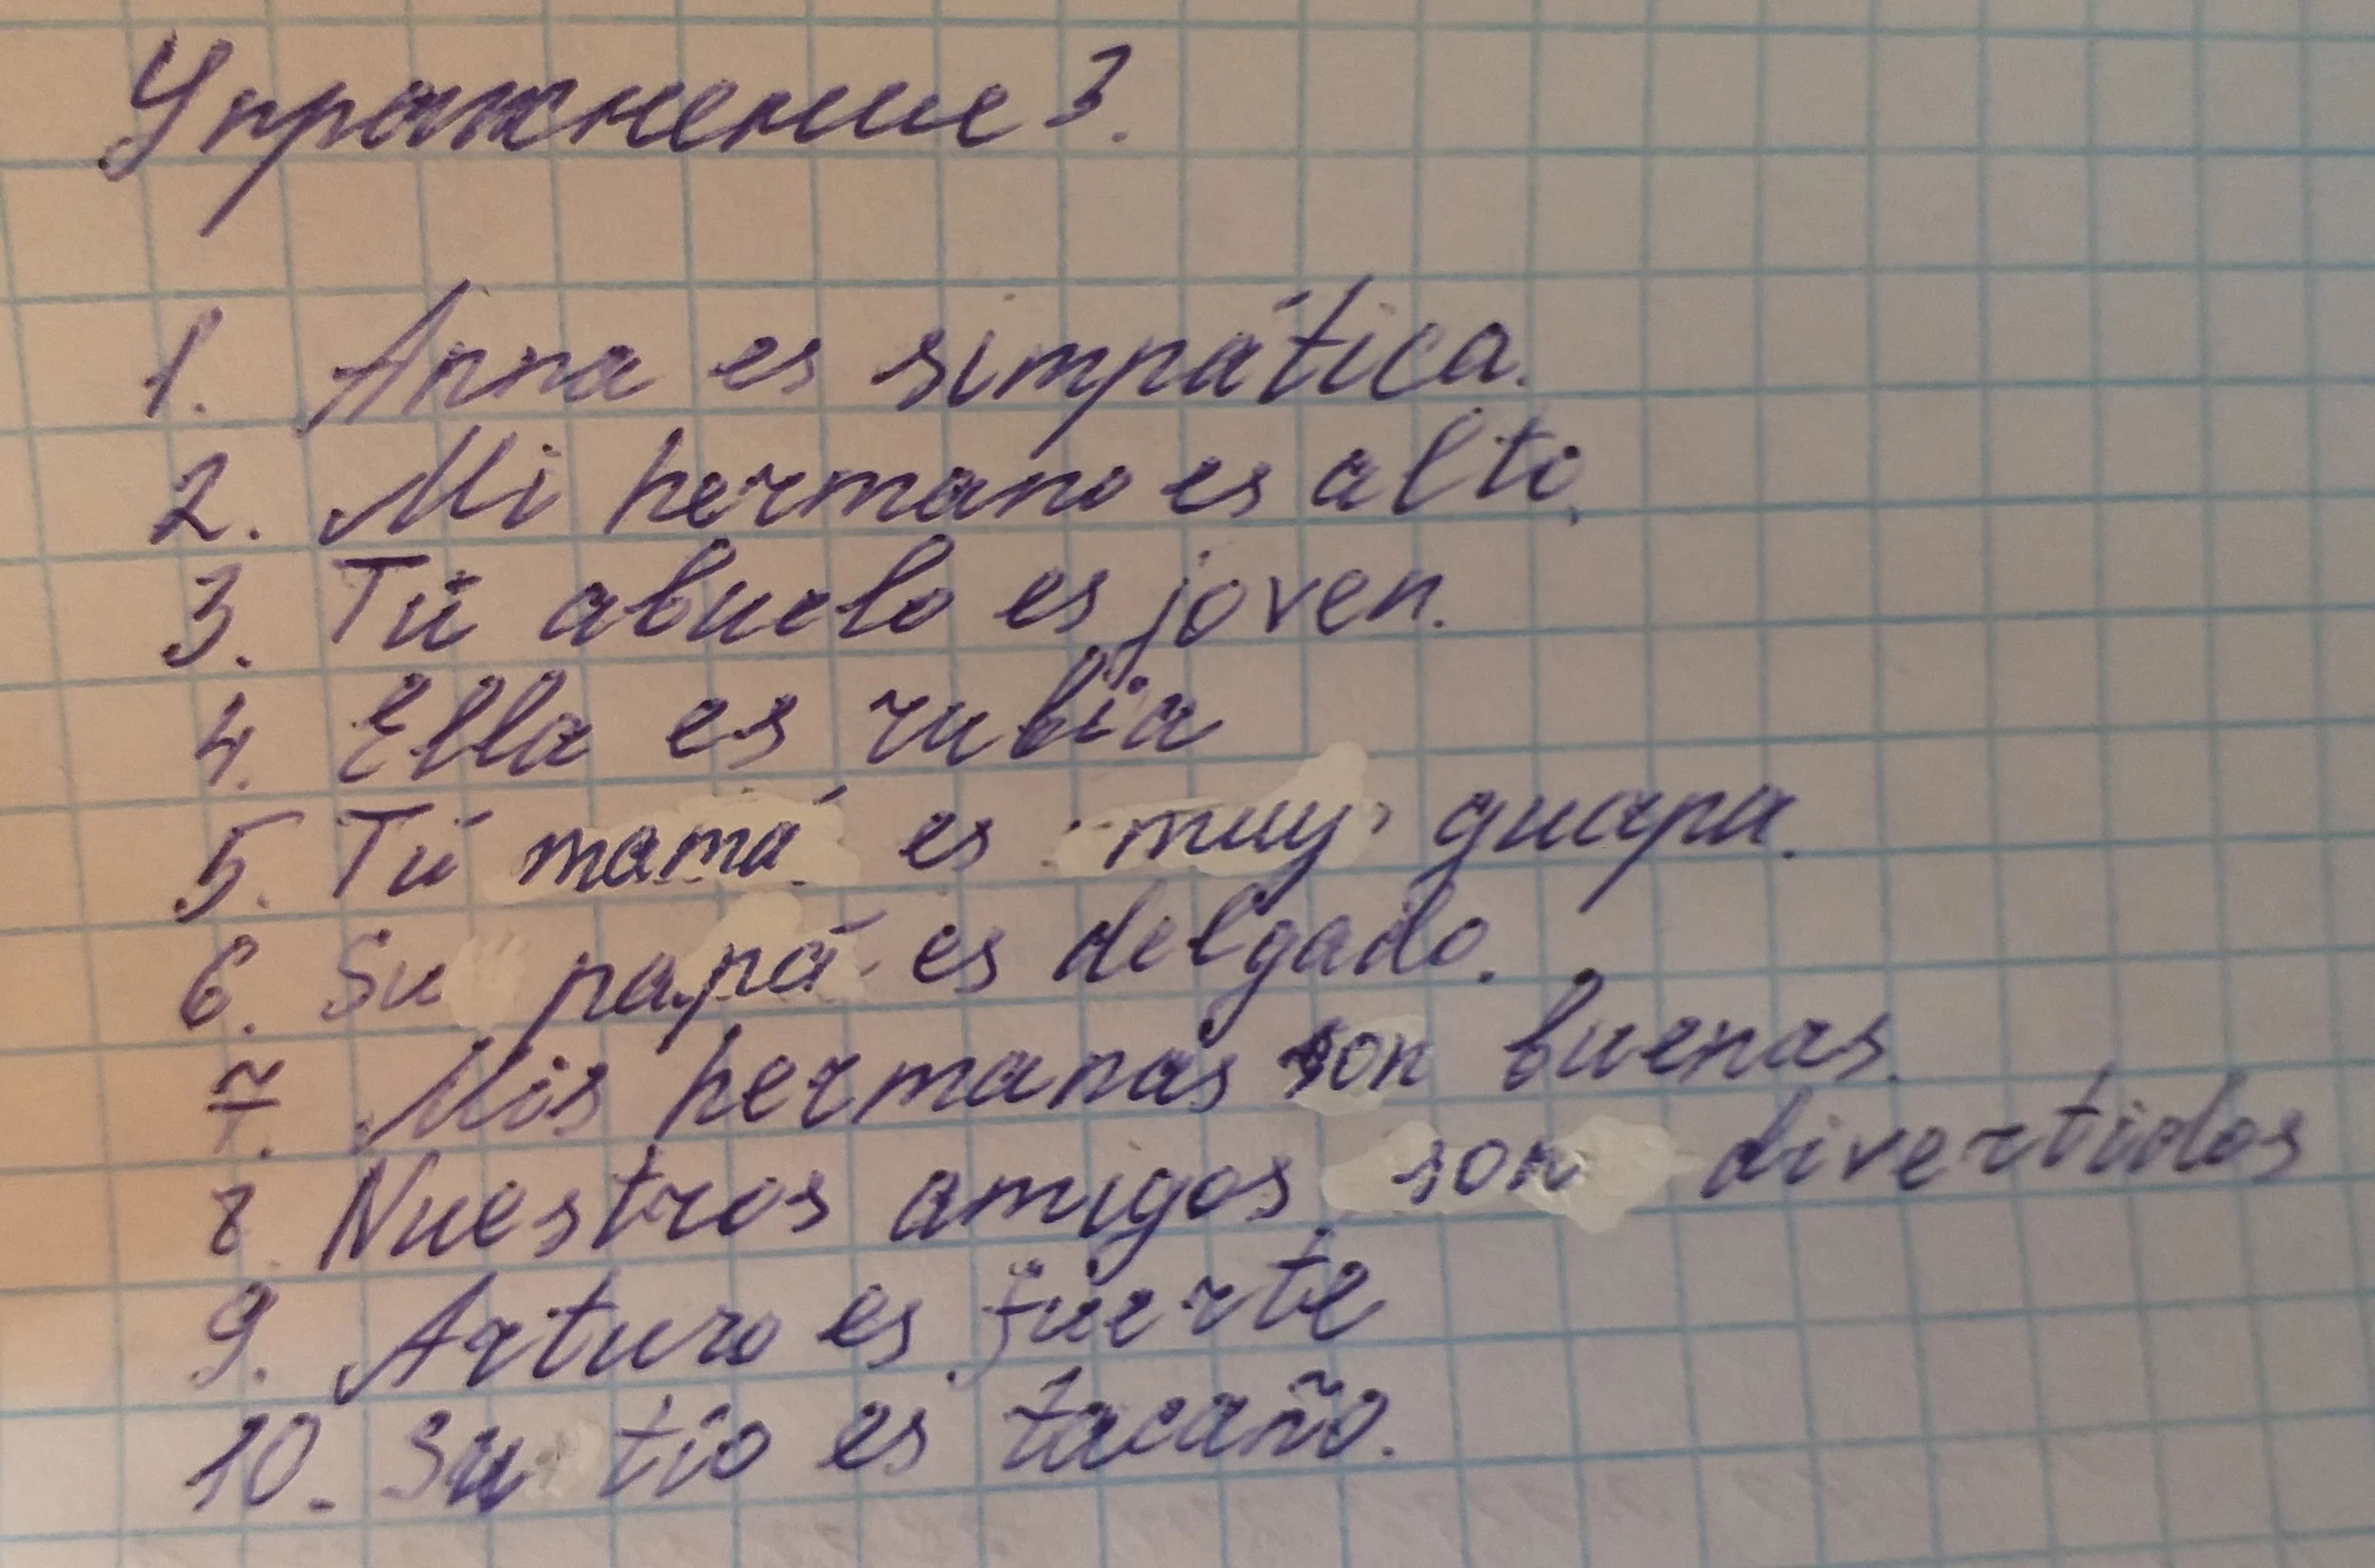 Упражнение 3.
1. Anna es simpática.
2. Mi hermano es alto.
3. Tú abuelo es joven.
4. Ella es rubia
5. Tú mamá es muy guapa.
6. Su papá es delgado.
7. Mis hermanas son buenas.
8. Nuestros amigos son divertidos
9. Arturo es fuerte
10. Su tío es tacaño.